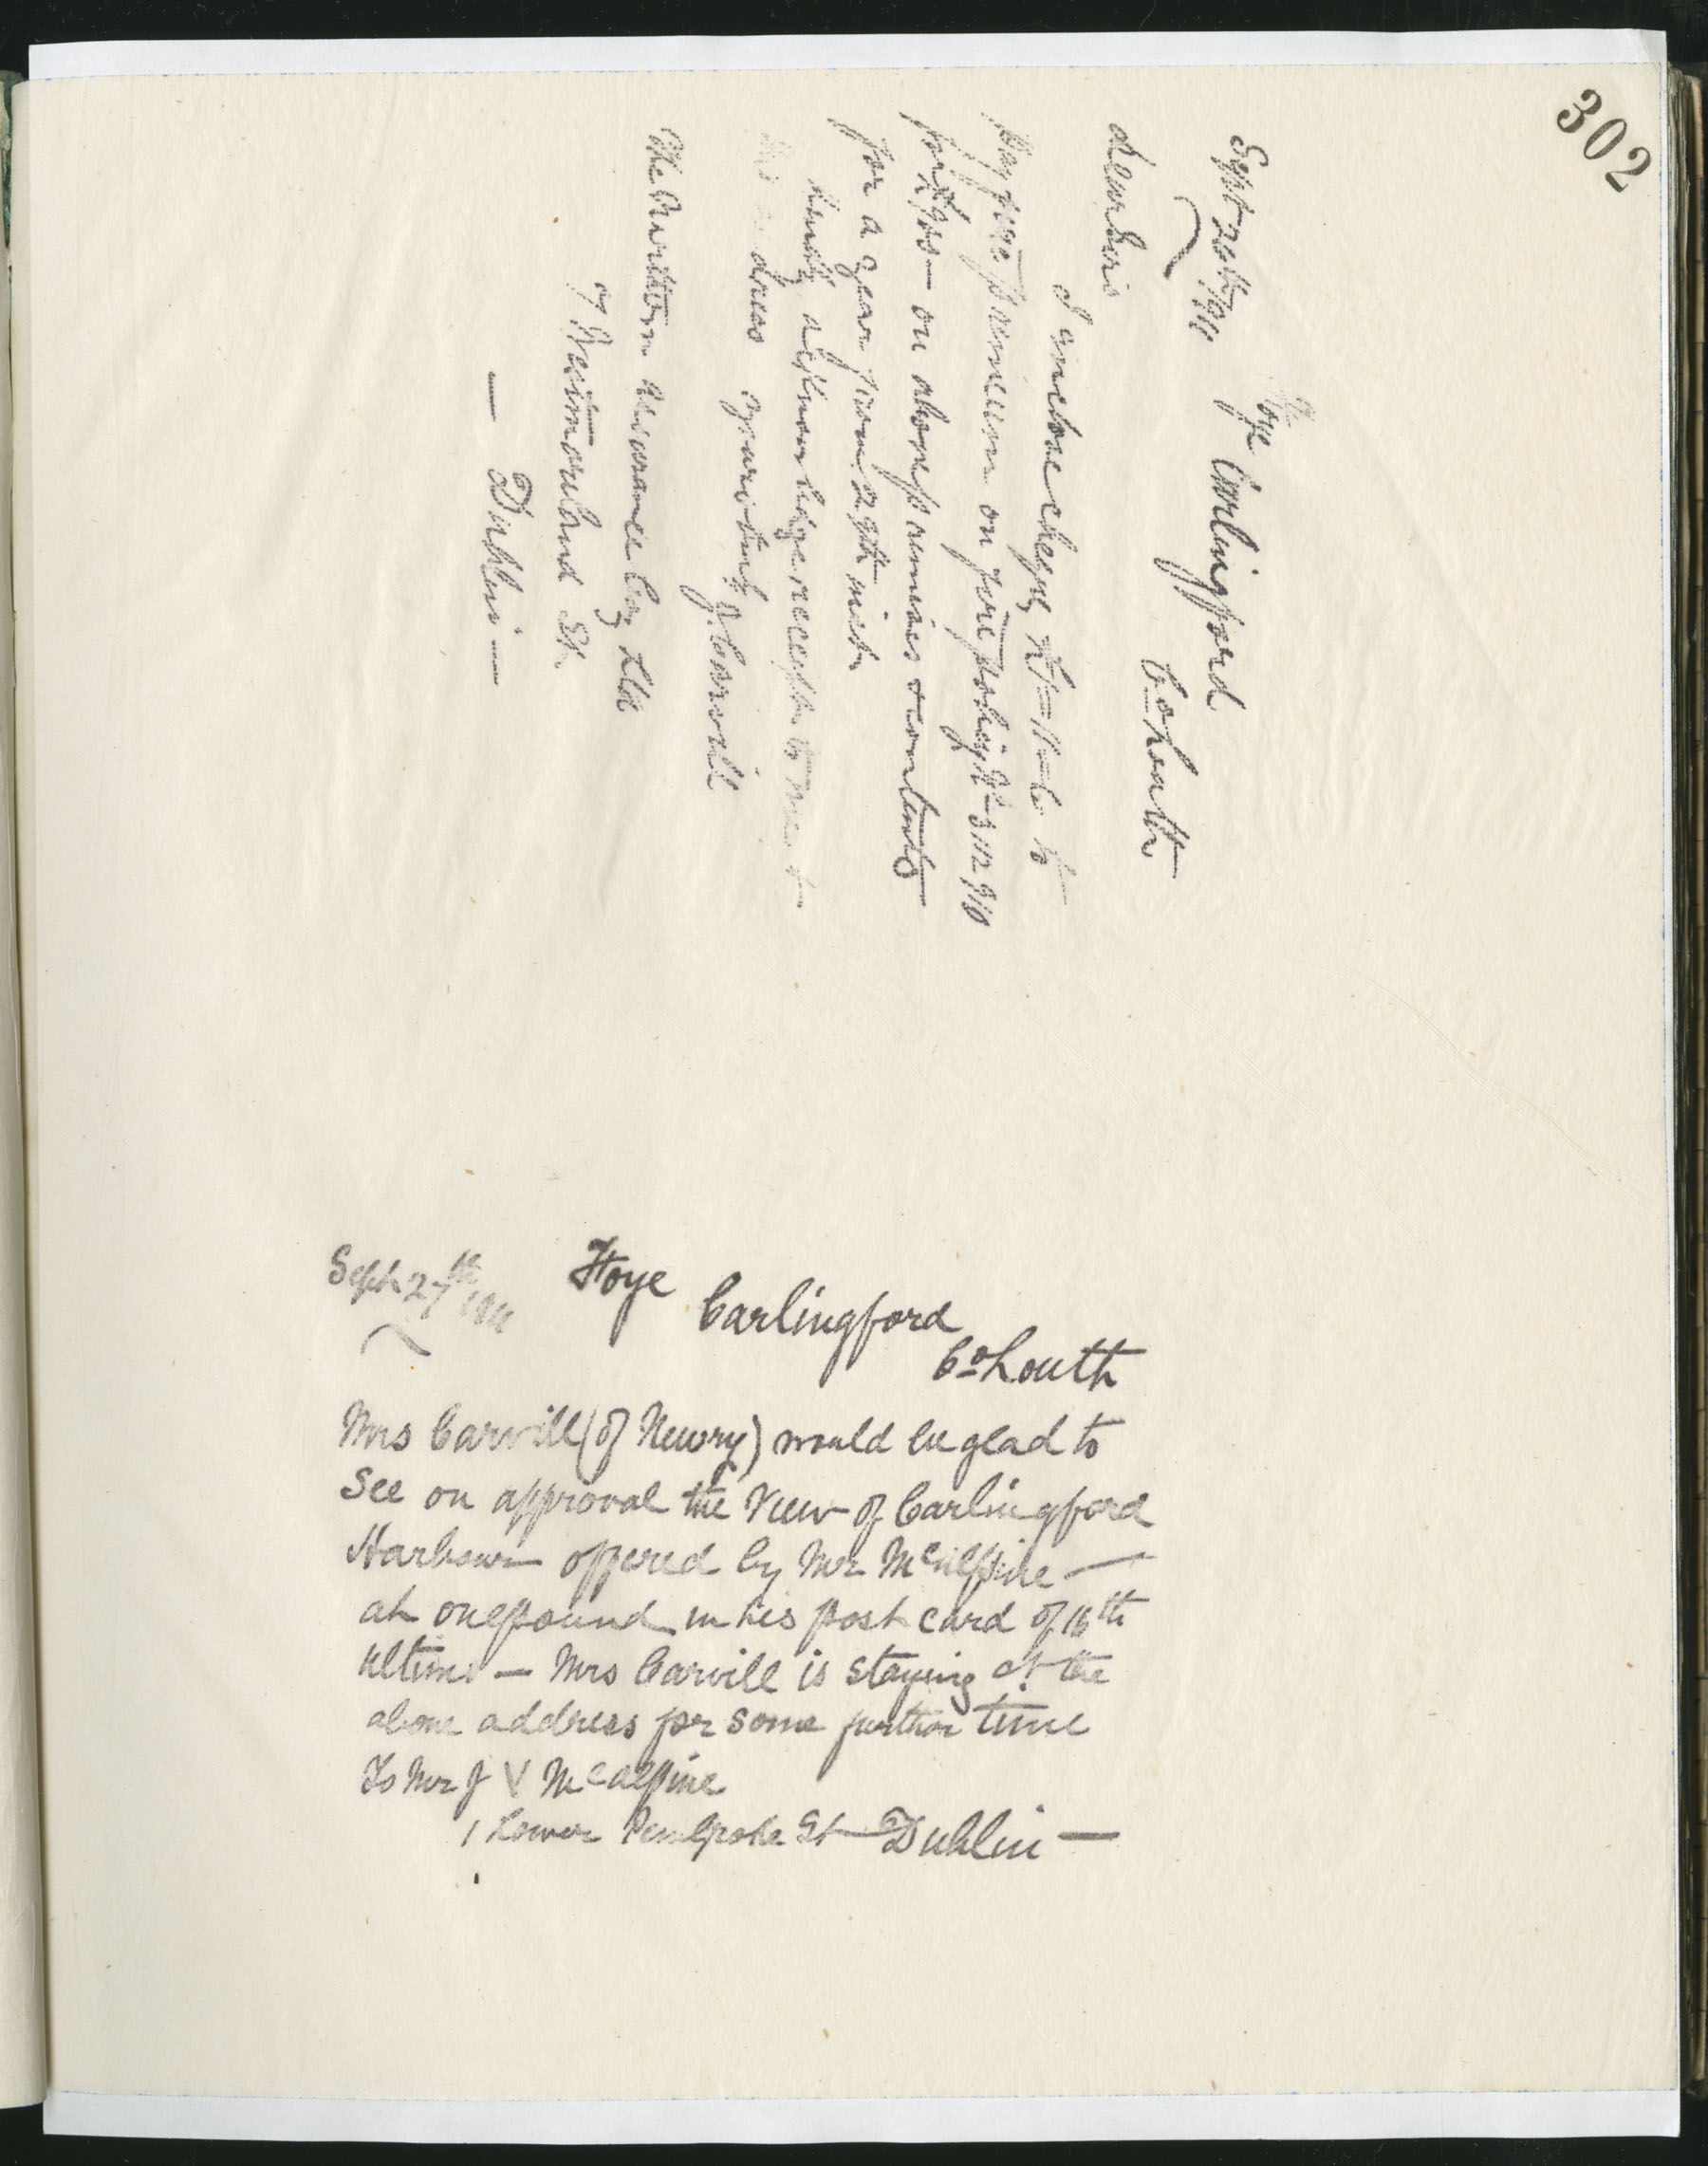 302
Sept 26th 1911 Foye Carlingford
Co Louth
Dear Sirs
I enclose cheque
pay fire premium on fire policy No 3112910
for £900 — on above premises contents
for a year from 29th inst.
Kindly acknowledge receipt to me at
this address yours truly
J. Carvill
The Northern Assurance Coy Ltd
7 Westmorland St.
— Dublin —
Sept 27th 1911 Foye
Carlingford
Co Louth
Mrs Carvill (of Newry) would be glad to
see on approval the View of Carlingford
Harbour offered by Mr McAlpine —
at one pound in his post card of 16th
ultimo — Mrs Carvill is staying at the
above address for some further time
To Mr J V McAlpine
1 Lower Pembroke St — Dublin —